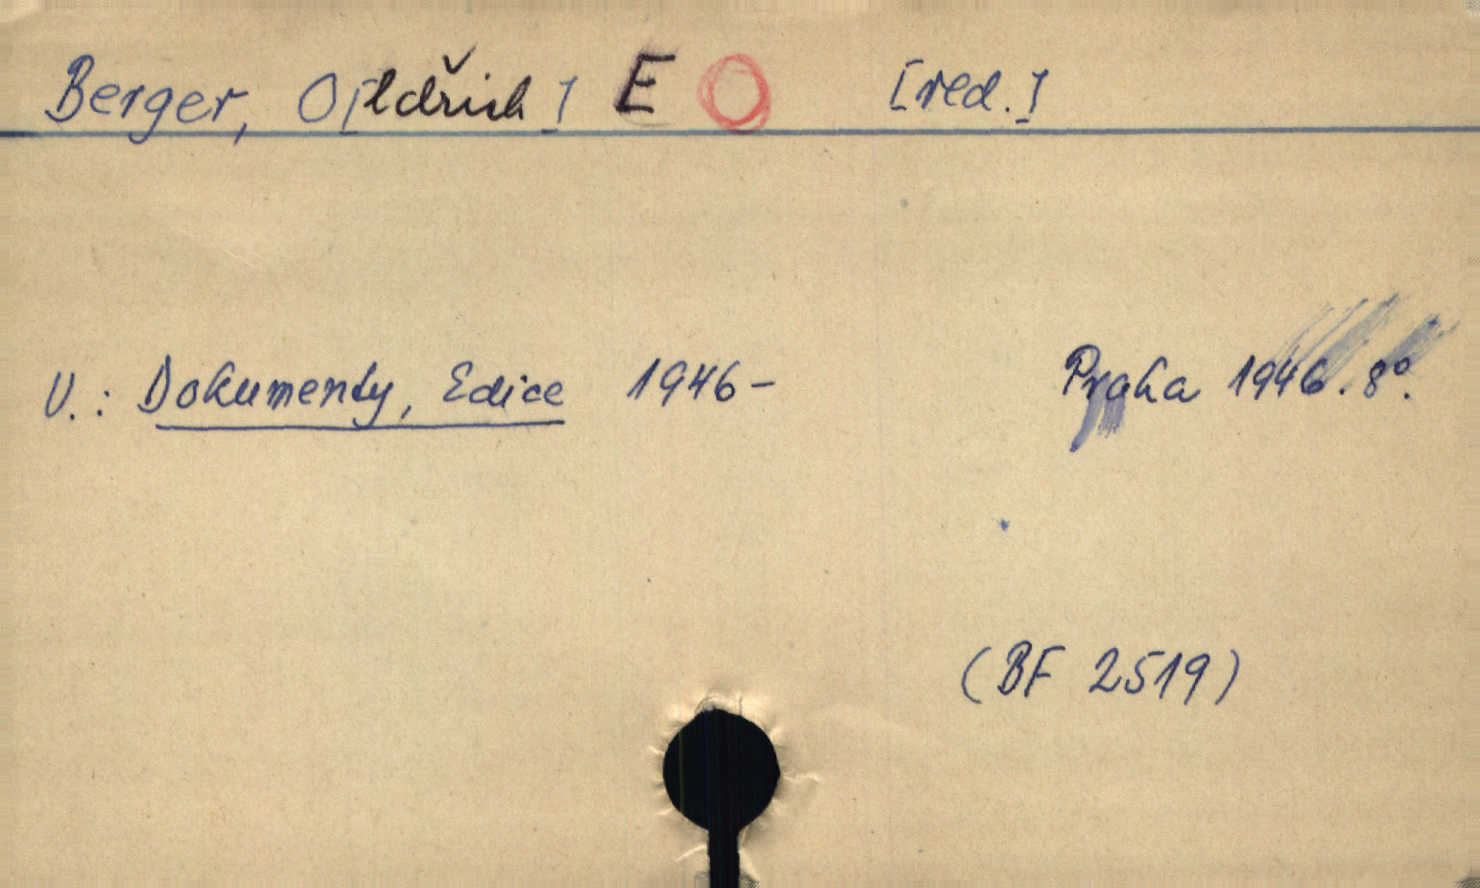 Berger, O[ldřich] E O [red.]
V.: Dokumenty, Edice 1946- Praha 1946. 8°.
(BF 2519)